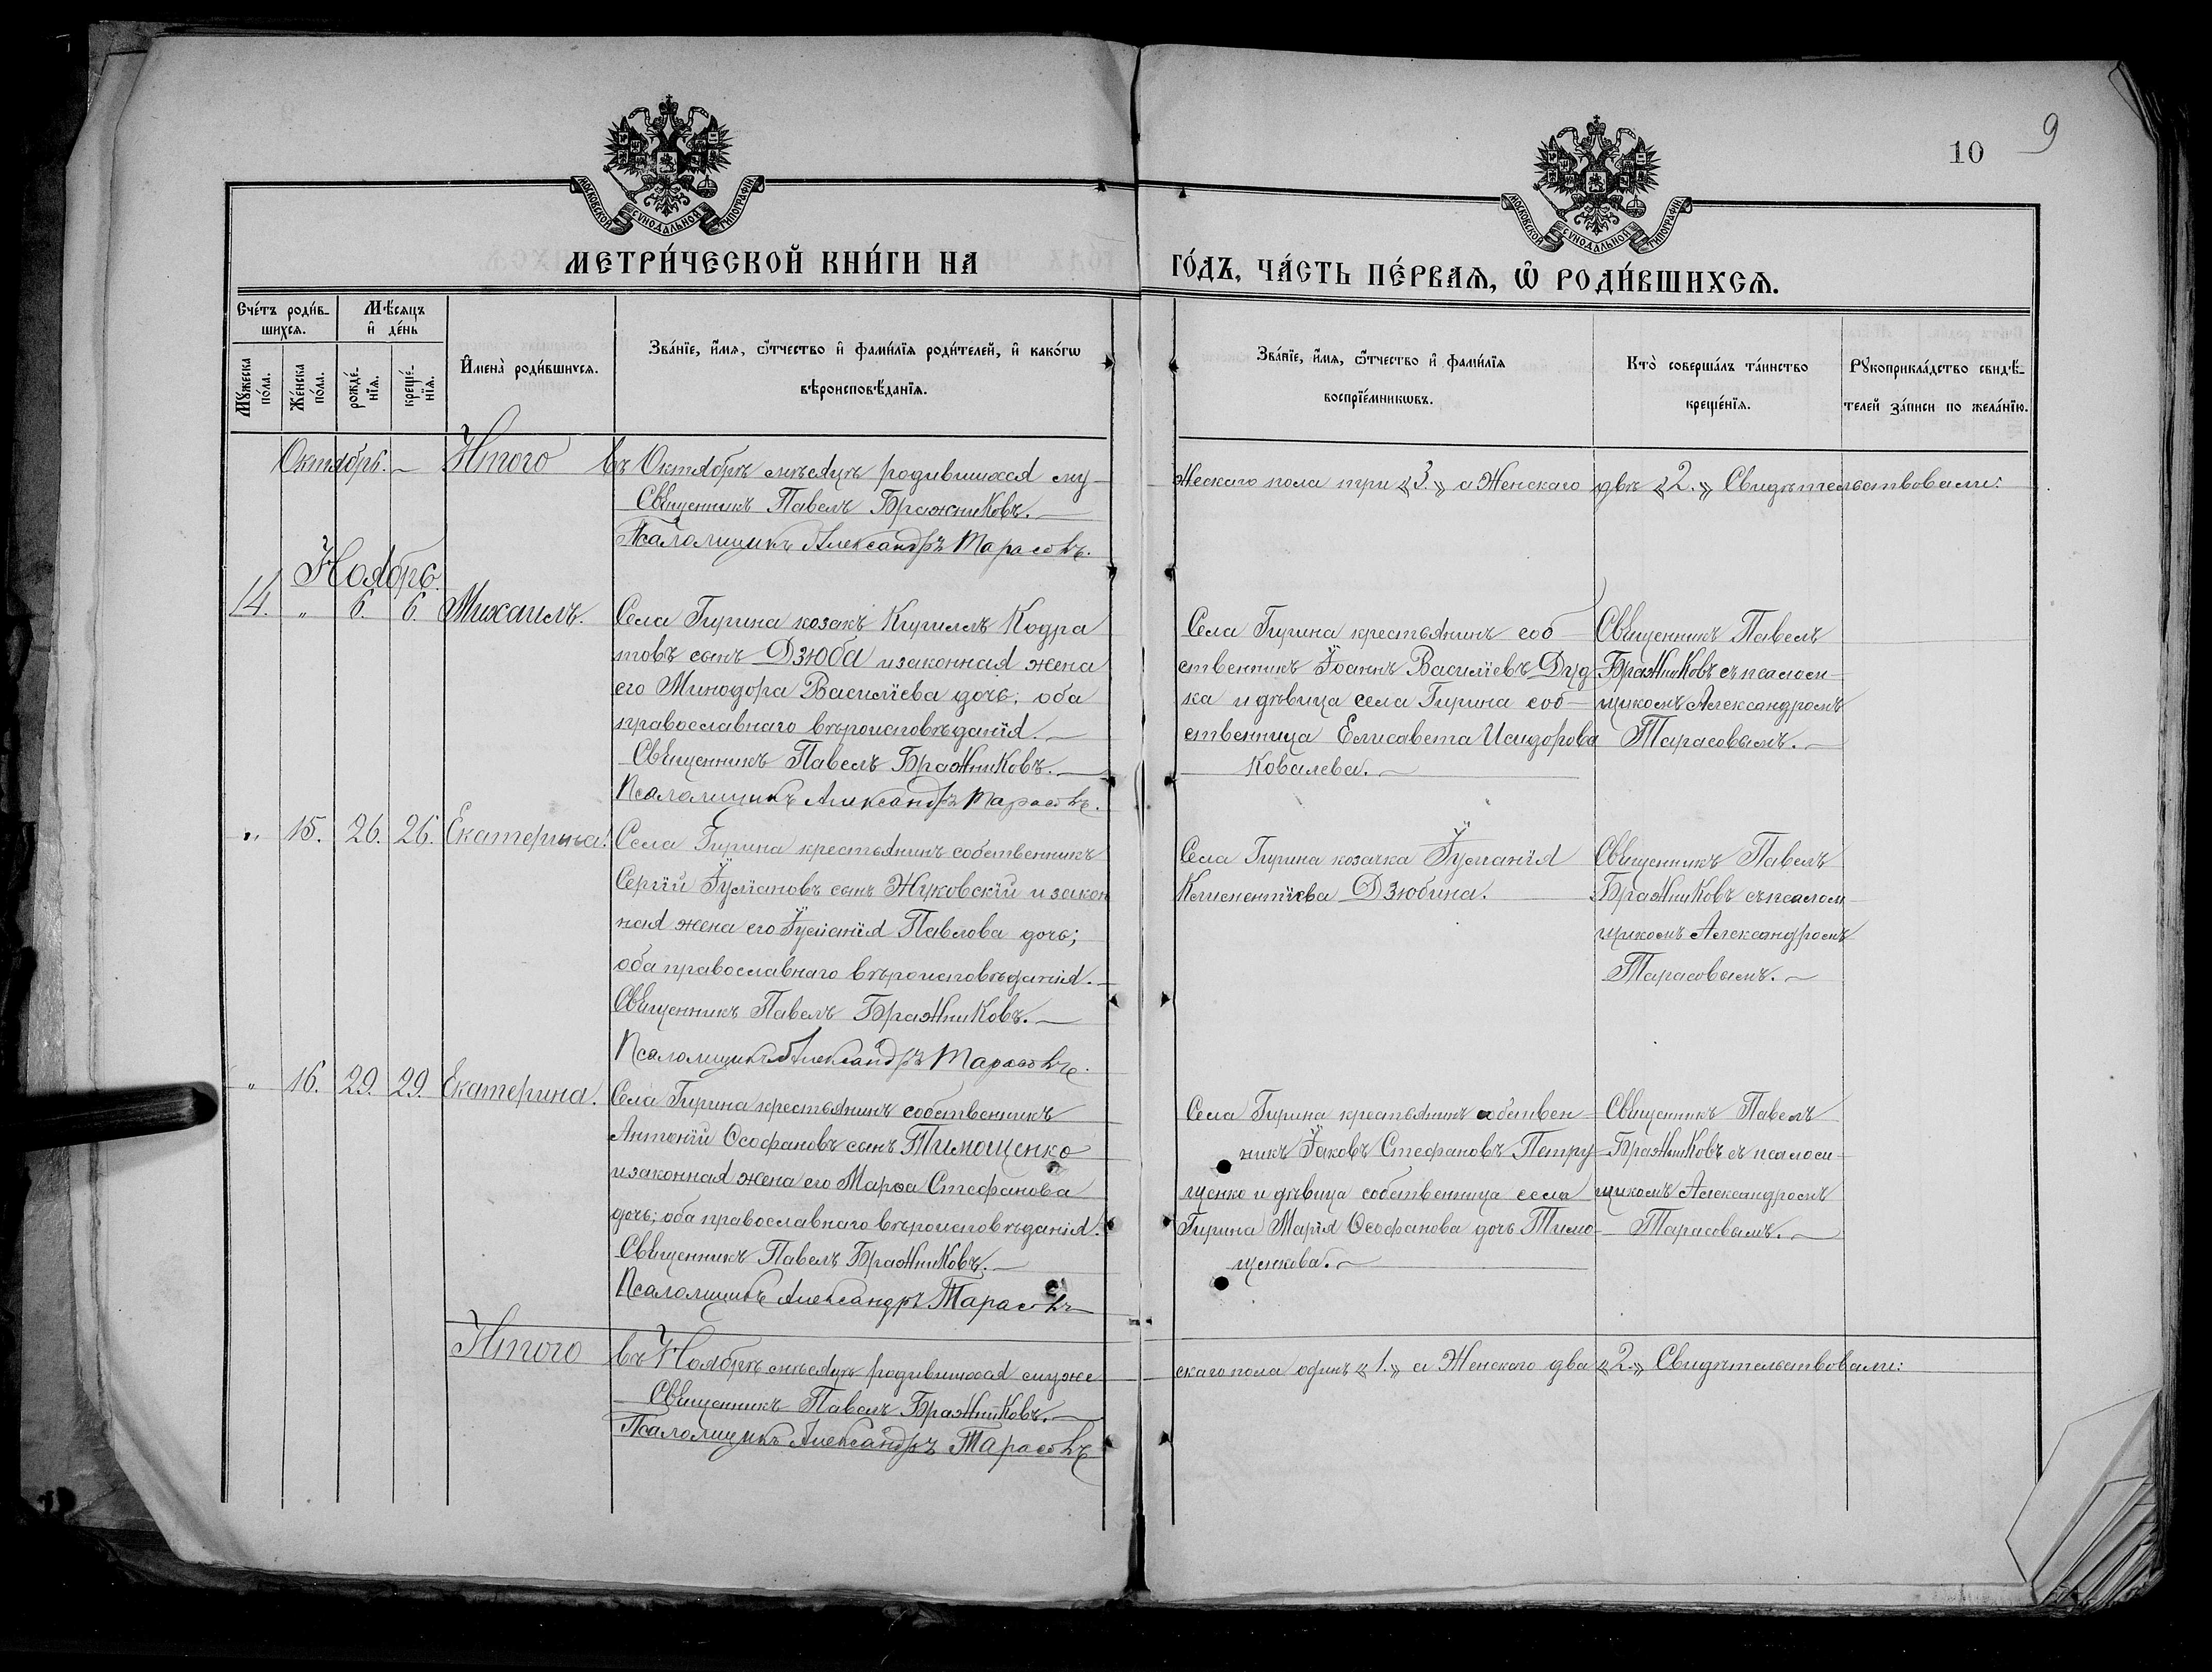 10
9
МОСКОВСКОЙ СѴНОДАЛЬНОЙ ТИПОГРАФІИ
МОСКОВСКОЙ СѴНОДАЛЬНОЙ ТИПОГРАФІИ
МЕТРИ́ЧЕСКОЙ КНИ́ГИ НА
ГО́ДЪ, ЧА́СТЬ ПЕ́РВАѦ, Ѡ҆ РОДИ́ВШИХСѦ.
Сче́тъ роди́в-
шихсѧ.
Мѣ́сѧцъ
и҆ де́нь
Мꙋ́жеска по́ла.
Же́нска по́ла.
рожде́-нїѧ.
креще́-нїѧ.
И҆мена̀ роди́вшихсѧ.
Зва́нїе, и҆́мѧ, ѻ҆́тчество и҆ фами́лїѧ роди́телей, и҆ како́гѡ
вѣроисповѣ́данїѧ.
Зва́нїе, и҆́мѧ, ѻ҆́тчество и҆ фами́лїѧ
воспрїе́мникѡвъ.
Кто̀ соверша́лъ та́инство
креще́нїѧ.
Рꙋкоприкла́дство свидѣ́-
телей за́писи по жела́нїю.
Октябрь. Итого въ Октябрѣ мѣсяцѣ родившихся му-
жескаго пола три «3.» а Женскаго двѣ «2.» Свидѣтельствовали:
Священникъ Павелъ Бражниковъ.
Псаломщикъ Александръ Тарасовъ.
Ноябрь.
14. " 6. 6. Михаилъ.
Села Гирина козакъ Кириллъ Кодра
товъ сынъ Дзюба и законная жена
его Минодора Василїева дочь; оба
православнаго вѣроисповѣданїя.
Священникъ Павелъ Бражниковъ.
Псаломщикъ Александръ Тарасовъ.
Села Гирина крестьянинъ соб-
ственникъ Їоаннъ Василїевъ Дуд-
ка и дѣвица села Гирина соб-
ственница Елисавета Исидорова
Ковалева.
Священникъ Павелъ
Бражниковъ съ псалом-
щикомъ Александромъ
Тарасовымъ.
" 15. 26. 26. Екатерина.
Села Гирина крестьянинъ собственникъ
Сергїй Їулїановъ сынъ Жуковскїй и закон
ная жена его Їулїанїя Павлова дочь;
оба православнаго вѣроисповѣданїя.
Священникъ Павелъ Бражниковъ.
Псаломщикъ Александръ Тарасовъ.
Села Гирина козачка Їулїанїя
Климентїева Дзюбина.
Священникъ Павелъ
Бражниковъ съ псалом-
щикомъ Александромъ
Тарасовымъ.
" 16. 29. 29. Екатерина.
Села Гирина крестьянинъ собственникъ
Антонїй Ѳеофановъ сынъ Тимощенко
и законная жена его Марѳа Стефанова
дочь; оба православнаго вѣроисповѣданїя.
Священникъ Павелъ Бражниковъ.
Псаломщикъ Александръ Тарасовъ
Села Гирина крестьянинъ собствен-
никъ Їаковъ Стефановъ Петру-
щенко и дѣвица собственница села
Гирина Марїя Ѳеофанова дочь Тимо-
щенкова.
Священникъ Павелъ
Бражниковъ съ псалом-
щикомъ Александромъ
Тарасовымъ.
Итого въ Ноябрѣ мѣсяцѣ родившихся муже
скаго пола одинъ «1.» а Женскаго два «2.» Свидѣтельствовали:
Священникъ Павелъ Бражниковъ.
Псаломщикъ Александръ Тарасовъ